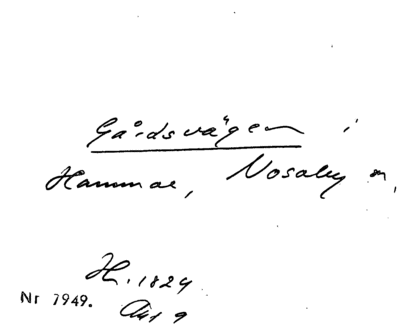 Gårdsvägen i
Hammar, Nosaby sn,
H. 1824
Nr 7949. Akt 9